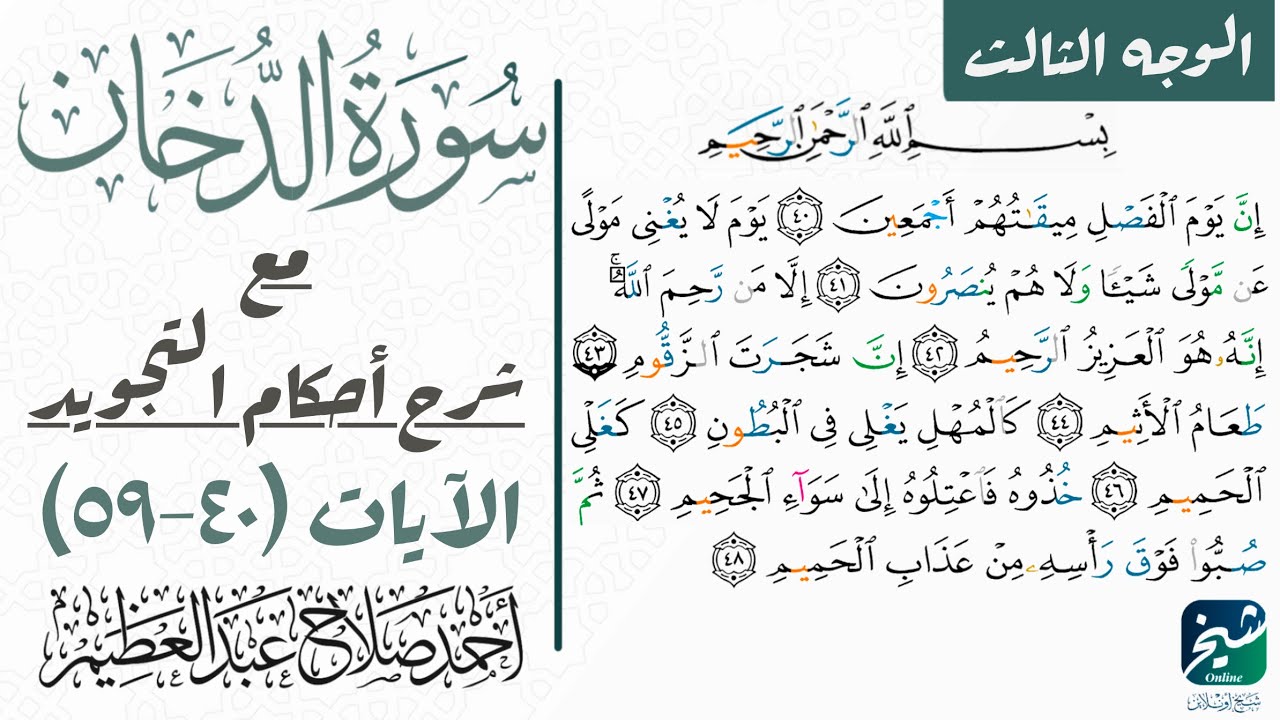 الوجه الثالث
بِسْمِ ٱللَّهِ ٱلرَّحْمَٰنِ ٱلرَّحِيمِ
إِنَّ يَوْمَ ٱلْفَصْلِ مِيقَٰتُهُمْ أَجْمَعِينَ ٤٠ يَوْمَ لَا يُغْنِى مَوْلًى
عَن مَّوْلًى شَيْـًٔا وَلَا هُمْ يُنصَرُونَ ٤١ إِلَّا مَن رَّحِمَ ٱللَّهُ ۚ
إِنَّهُۥ هُوَ ٱلْعَزِيزُ ٱلرَّحِيمُ ٤٢ إِنَّ شَجَرَتَ ٱلزَّقُّومِ ٤٣
طَعَامُ ٱلْأَثِيمِ ٤٤ كَٱلْمُهْلِ يَغْلِى فِى ٱلْبُطُونِ ٤٥ كَغَلْىِ
ٱلْحَمِيمِ ٤٦ خُذُوهُ فَٱعْتِلُوهُ إِلَىٰ سَوَآءِ ٱلْجَحِيمِ ٤٧ ثُمَّ
صُبُّوا۟ فَوْقَ رَأْسِهِۦ مِنْ عَذَابِ ٱلْحَمِيمِ ٤٨
سُورَةُ الدُّخَان
مع
شرح أحكام التجويد
الآيات (٤٠-٥٩)
أحمد صلاح عبد العظيم
شيخ
Online
شيخ اونلاين